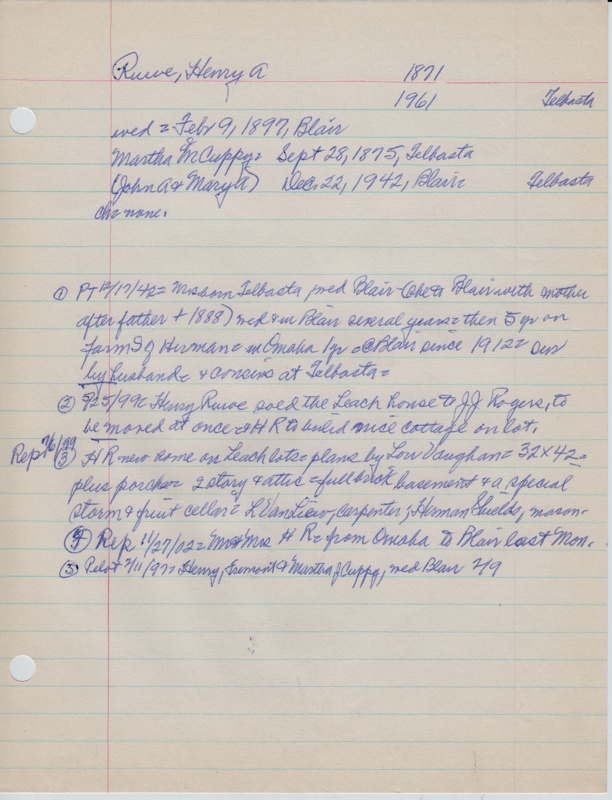 Ruwe, Henry A 1871
1961 Telbasta
wed = Febr 9, 1897, Blair
Martha M Cuppy = Sept 28, 1875, Telbasta
(John A & Mary A) Dec. 22, 1942, Blair = Telbasta
ch = none.
① PT 12/17/42 = Mrs born Telbasta, wed Blair - (she to Blair with mother
after father + 1888) wed & in Blair several years = then 5 yr on
Farm S of Herman = in Omaha 1 yr = @ Blair since 1912 = sur
by husband = & cousins at Telbasta =
② 9/25/99 = Henry Ruwe sold the Leach house to J.J. Rogers, to
be moved at once = H R to build nice cottage on lot.
Rep 7/6/99 ③ H R new home on Leach lots = plans by Lou Vaughan = 32 x 42 =
plus porches = 2 story & attic = full brick basement & a special
storm & fruit cellar = K Van Liew, carpenter; Herman Shields, mason.
④ Rep 11/27/02 = Mr & Mrs H R = from Omaha to Blair last Mon.
⑤ Pilot 2/11/97 = Henry, Fremont & Martha J Cuppy, wed Blair 2/9